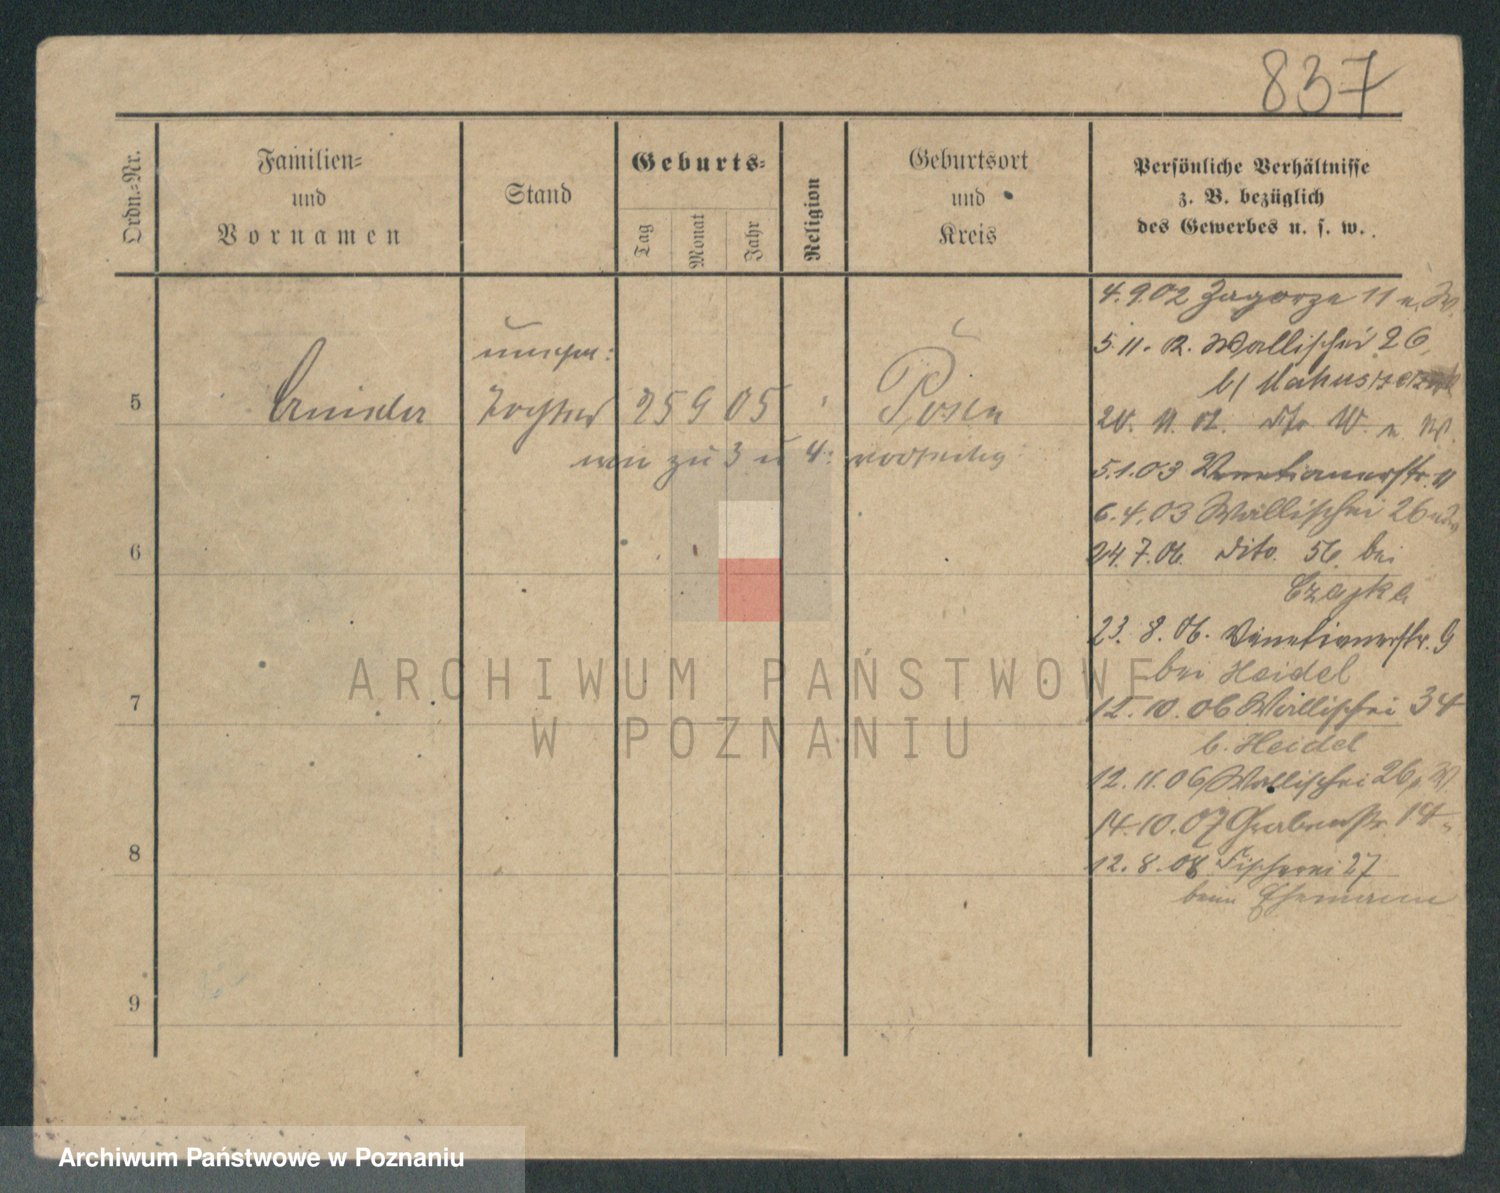 837
Ordn.=Nr.
Familien=
und
Vornamen
Stand
Geburts=
Tag
Monat
Jahr
Religion
Geburtsort
und
Kreis
Persönliche Verhältnisse
z. B. bezüglich
des Gewerbes u. s. w.
4.9.02 Zagorze 11 u. W.
5.11.02. Wallischei 26,
b/
20. 11. 02. dto W. u. W.
5.1.03 Venetianerstr. 11
6.4.03 Wallischei 26
24.7.06. dito. 56. bei
Czajka
23. 8. 06. Venetianerstr. 9
bei Heidel
12. 10. 06 Wallischei 34
b. Heidel
12. 11. 06 Wallischei 26, W
14.10.07 Grabenstr. 14
12. 8. 08. Fischerei 27
beim Ehemann
unehel:
5
Tochter 25 9 05 Posen
wie zu 3 u 4:
6
7
8
9
ARCHIWUM PAŃSTWOWE
W POZNANIU
Archiwum Państwowe w Poznaniu